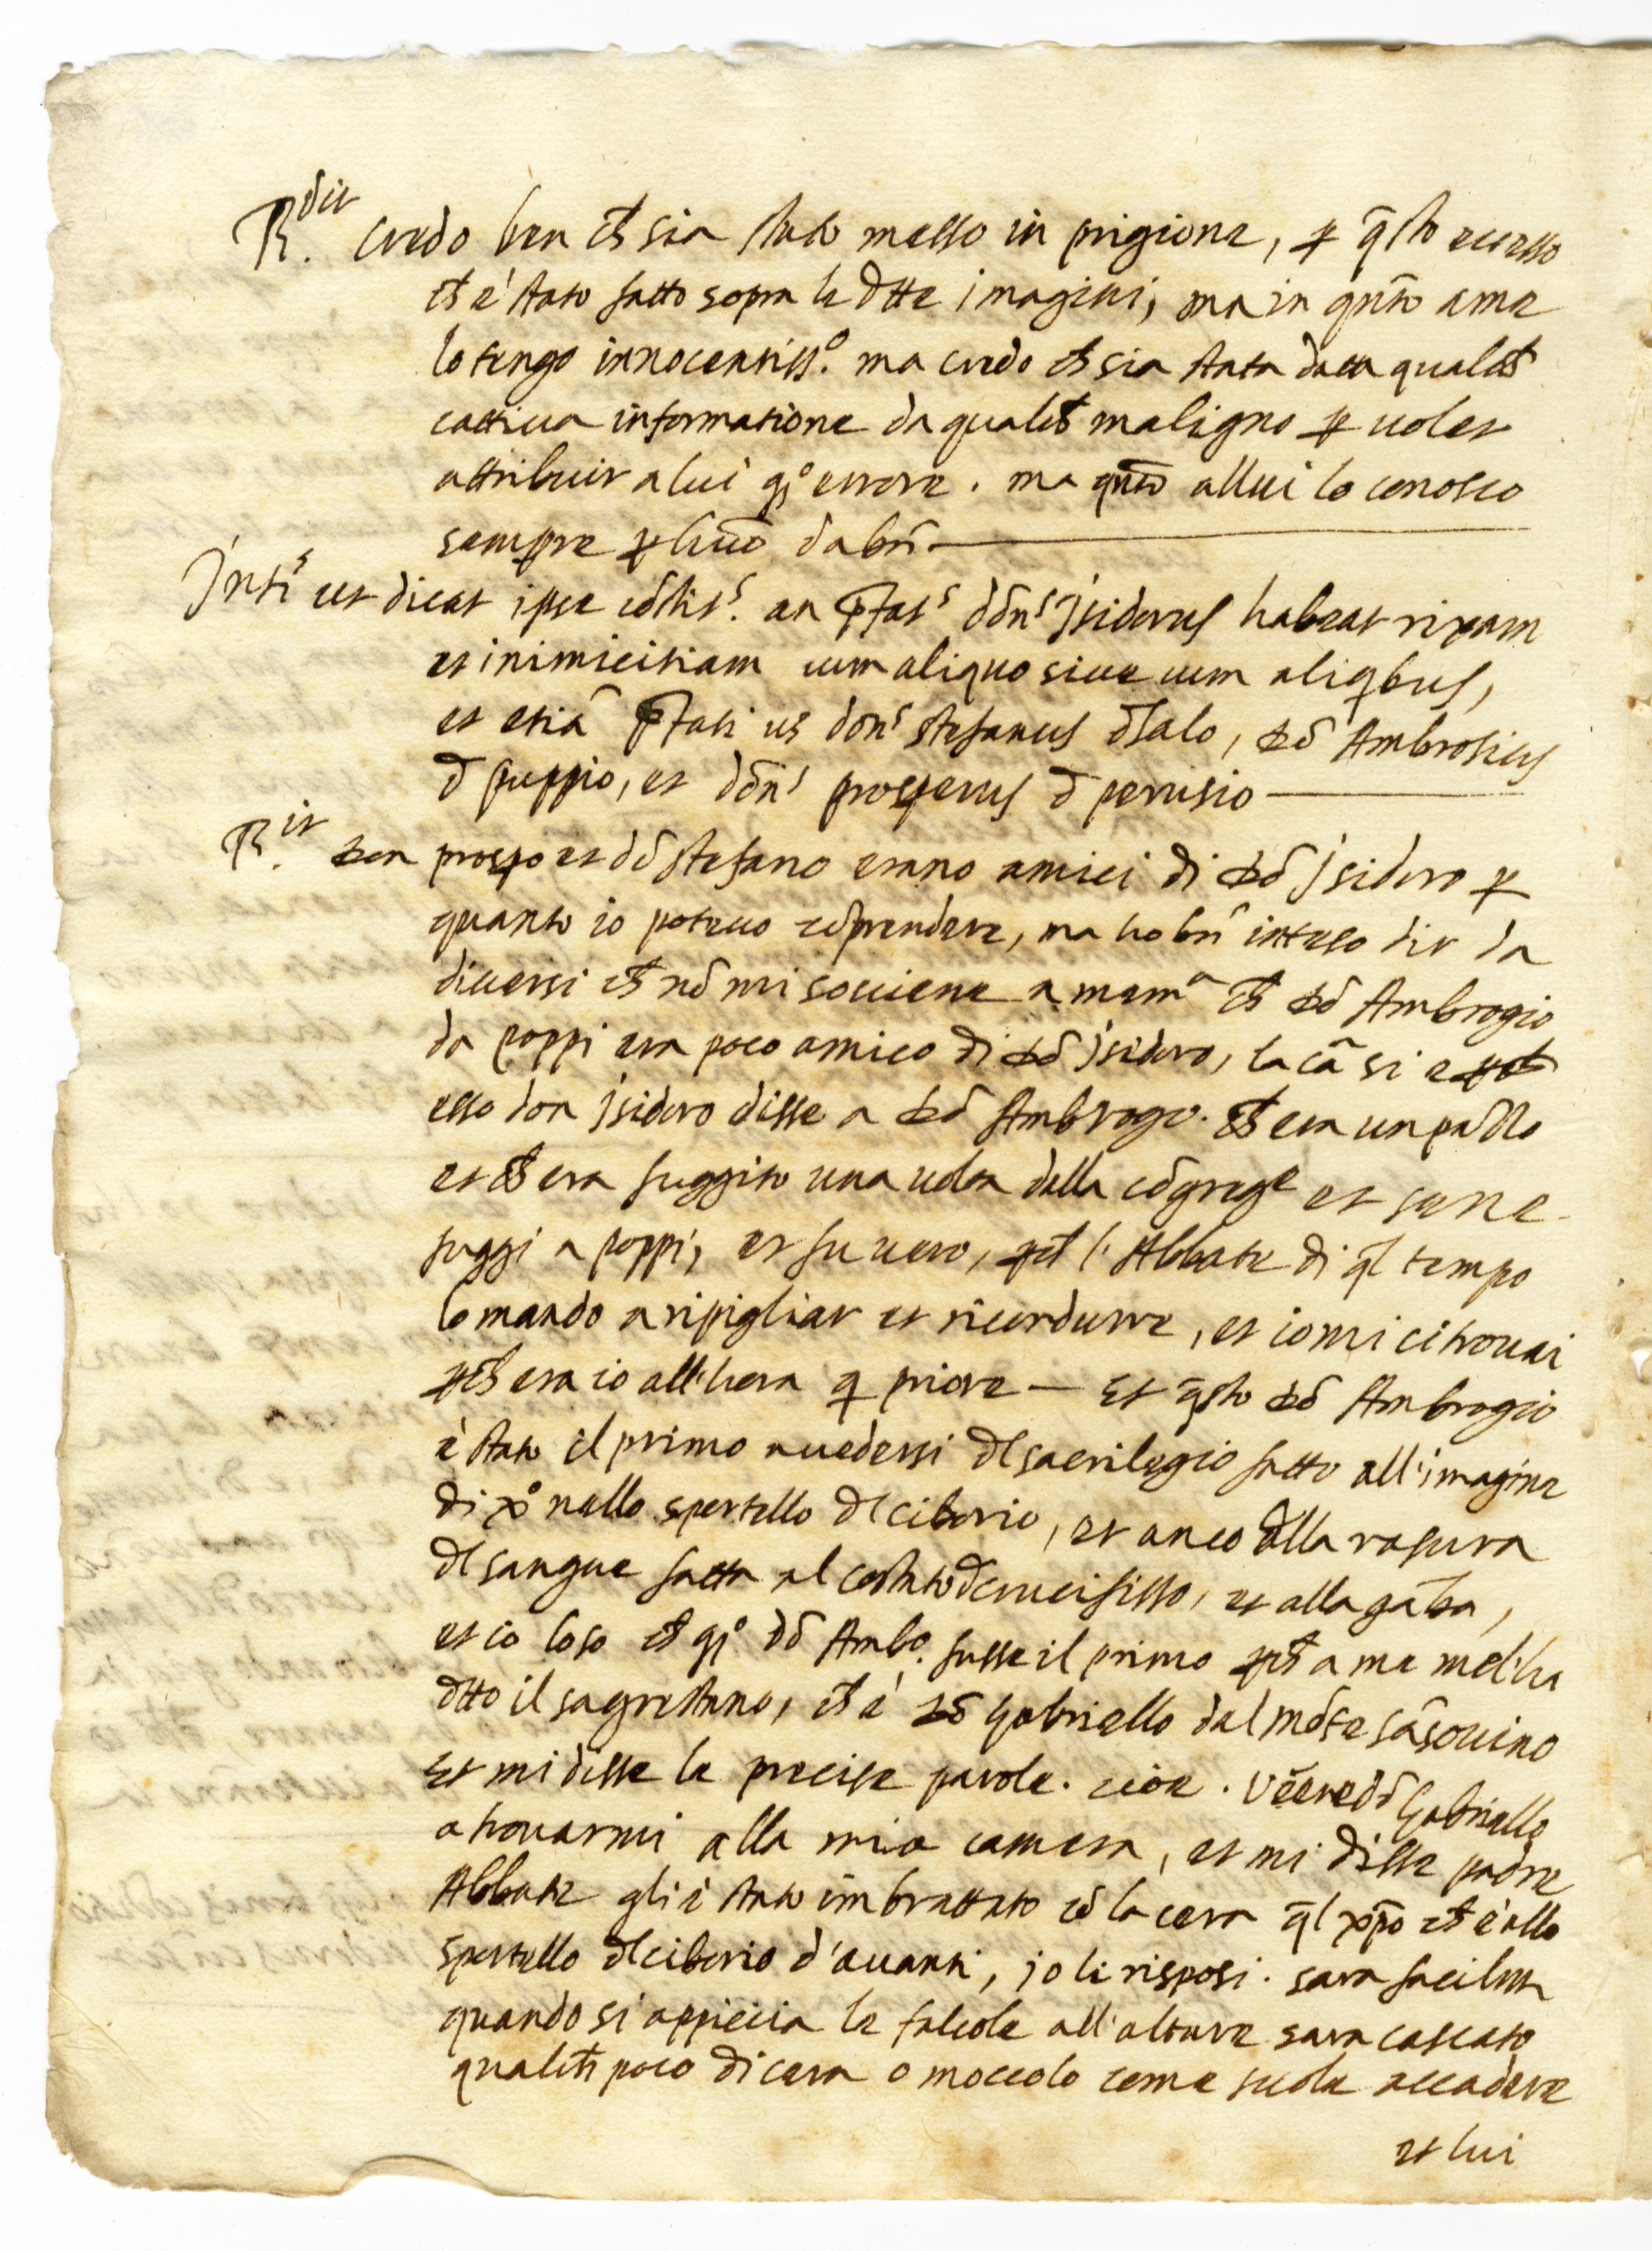 R.dit credo ben ch sia stato messo in prigione, p q̄sto eccesso
ch è stato fatto sopra le dtte imagini, ma in qn̄to a me
lo tengo innocentiss.o ma credo ch sia stata data qualch
cattiua informatione da qualch maligno p uoler
attribuir a lui qo errore. ma qn̄to allui lo conosco
sempre p huō dabn̄
Jnt.s ut dicat ipse cōstit.s an p̄fat.s dōn.s Jsidorus habeat rixam
et inimicitiam cum aliquo siue cum aliqbus,
et etiā p̄fati us don.s stefanus d salo, dō Ambrosius
d puppio, et dōn.s prosperus d perusio
R.it don prospo et dō stefano erano amici di dō Jsidoro p
quanto io poteuo cōprendere, ma ho bn̄ inteso dir da
diuersi ch nō mi souiene a mem.a ch dō Ambrogio
da poppi era poco amico di dō Jsidoro, la cā si e
esso don Jsidoro disse a dō Ambrogo. ch era un
et ch era fuggito una uolta dalla cōgreg.e et se ne
fuggi a poppi, et fu uero, pch l'Abbate di ql tempo
lo mando a ripigliar et ricondurre, et io mi ci trouai
pch era io all'hora q priore — Et q̄sto dō Ambrogio
è stato il primo auedersi dl sacrilegio fatto all'imagine
di xo nello sportello dl ciborio, et anco dlla rasura
dl sangue fatta al costato dl crucifisso, et alla gāba,
et io lo so ch qo dō Ambo. fusse il primo pch a me mel'ha
dtto il sagrestano, ch è dō Gabriello dal mōte sāsouino
Et mi disse le precise parole. cioe. vēne dō Gabriello
a trouarmi alla mia camera, et mi disse padre
Abbate gli è stato imbrattato cō la cera q̄l xp̄o ch è allo
sportello dl ciborio d'auanti, jo li risposi. sara facilm
quando si appiccia le falcole all'altare sara cascato
qualch poco di cera o moccolo come suole accadere
et lui